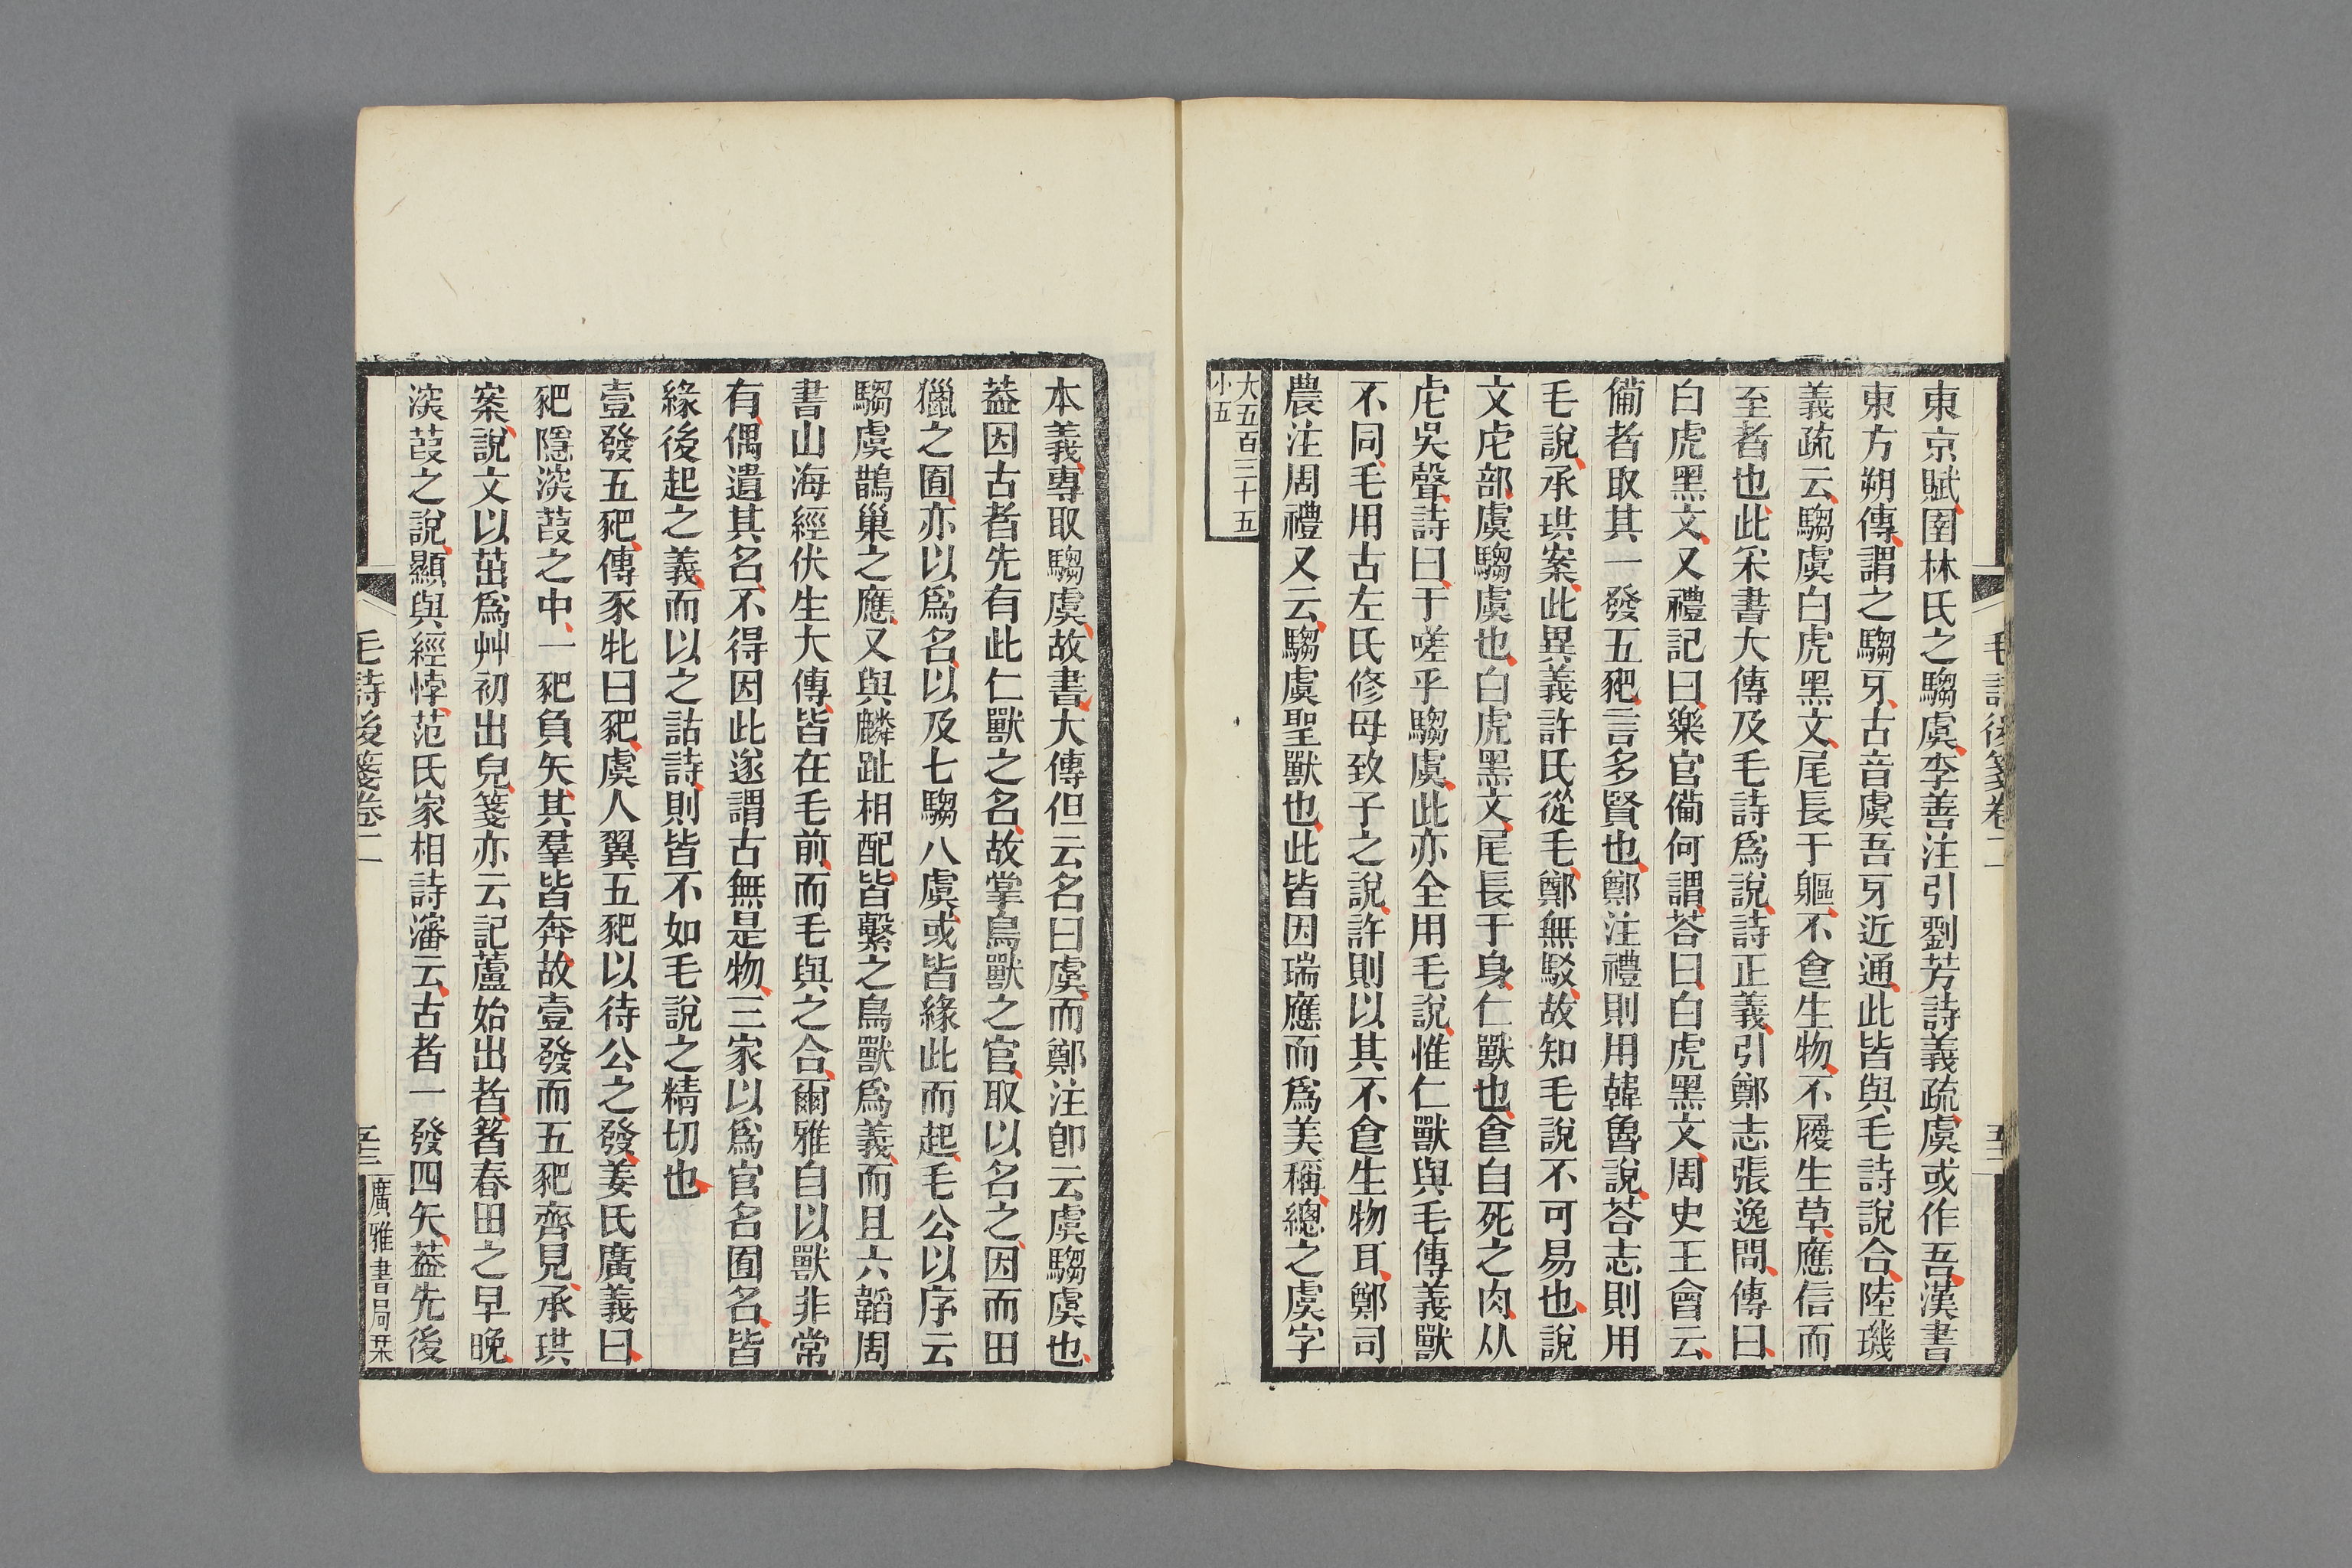 毛詩後箋卷二
東京賦圉林氏之騶虞李善注引劉芳詩義疏虞或作吾漢書
東方朔傳謂之騶牙古音虞吾牙近通此皆與毛詩說合陸璣
義疏云騶虞白虎黑文尾長于軀不食生物不履生草應信而
至者也此宋書大傳及毛詩爲說詩正義引鄭志張逸問傳曰
白虎黑文又禮記曰樂官備何謂荅曰白虎黑文周史王會云
備者取其一發五豝言多賢也鄭注禮則用韓魯說荅志則用
毛說承珙案此異義許氏從毛鄭無駁故知毛說不可易也說
文虍部虞騶虞也白虎黑文尾長于身仁獸也食自死之肉从
虍吳聲詩曰于嗟乎騶虞此亦全用毛說惟仁獸與毛傳義獸
不同毛用古左氏修母致子之說許則以其不食生物耳鄭司
農注周禮又云騶虞聖獸也此皆因瑞應而爲美稱總之虞字
大五百三十五
小五
本義專取騶虞故書大傳但云名曰虞而鄭注卽云虞騶虞也
葢因古者先有此仁獸之名故掌鳥獸之官取以名之因而田
獵之囿亦以爲名以及七騶八虞或皆緣此而起毛公以序云
騶虞鵲巢之應又與麟趾相配皆繫之鳥獸爲義而且六韜周
書山海經伏生大傳皆在毛前而毛與之合爾雅自以獸非常
有偶遺其名不得因此遂謂古無是物三家以爲官名囿名皆
緣後起之義而以之詁詩則皆不如毛說之精切也
壹發五豝傳豕牝曰豝虞人翼五豝以待公之發姜氏廣義曰
豝隱深葭之中一豝負矢其羣皆奔故壹發而五豝齊見承珙
案說文以茁爲艸初出皃箋亦云記蘆始出者箸春田之早晚
深葭之說顯與經悖范氏家相詩瀋云古者一發四矢葢先後
毛詩後箋卷二
廣雅書局栞